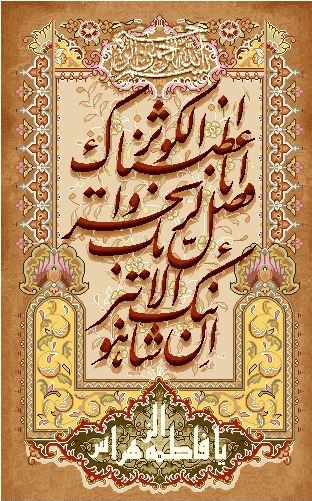 بسم الله الرحمن الرحیم
انا اعطیناک الکوثر
فصل لربک وانحر
ان شانئک هو الابتر
یا فاطمه الزهرا س